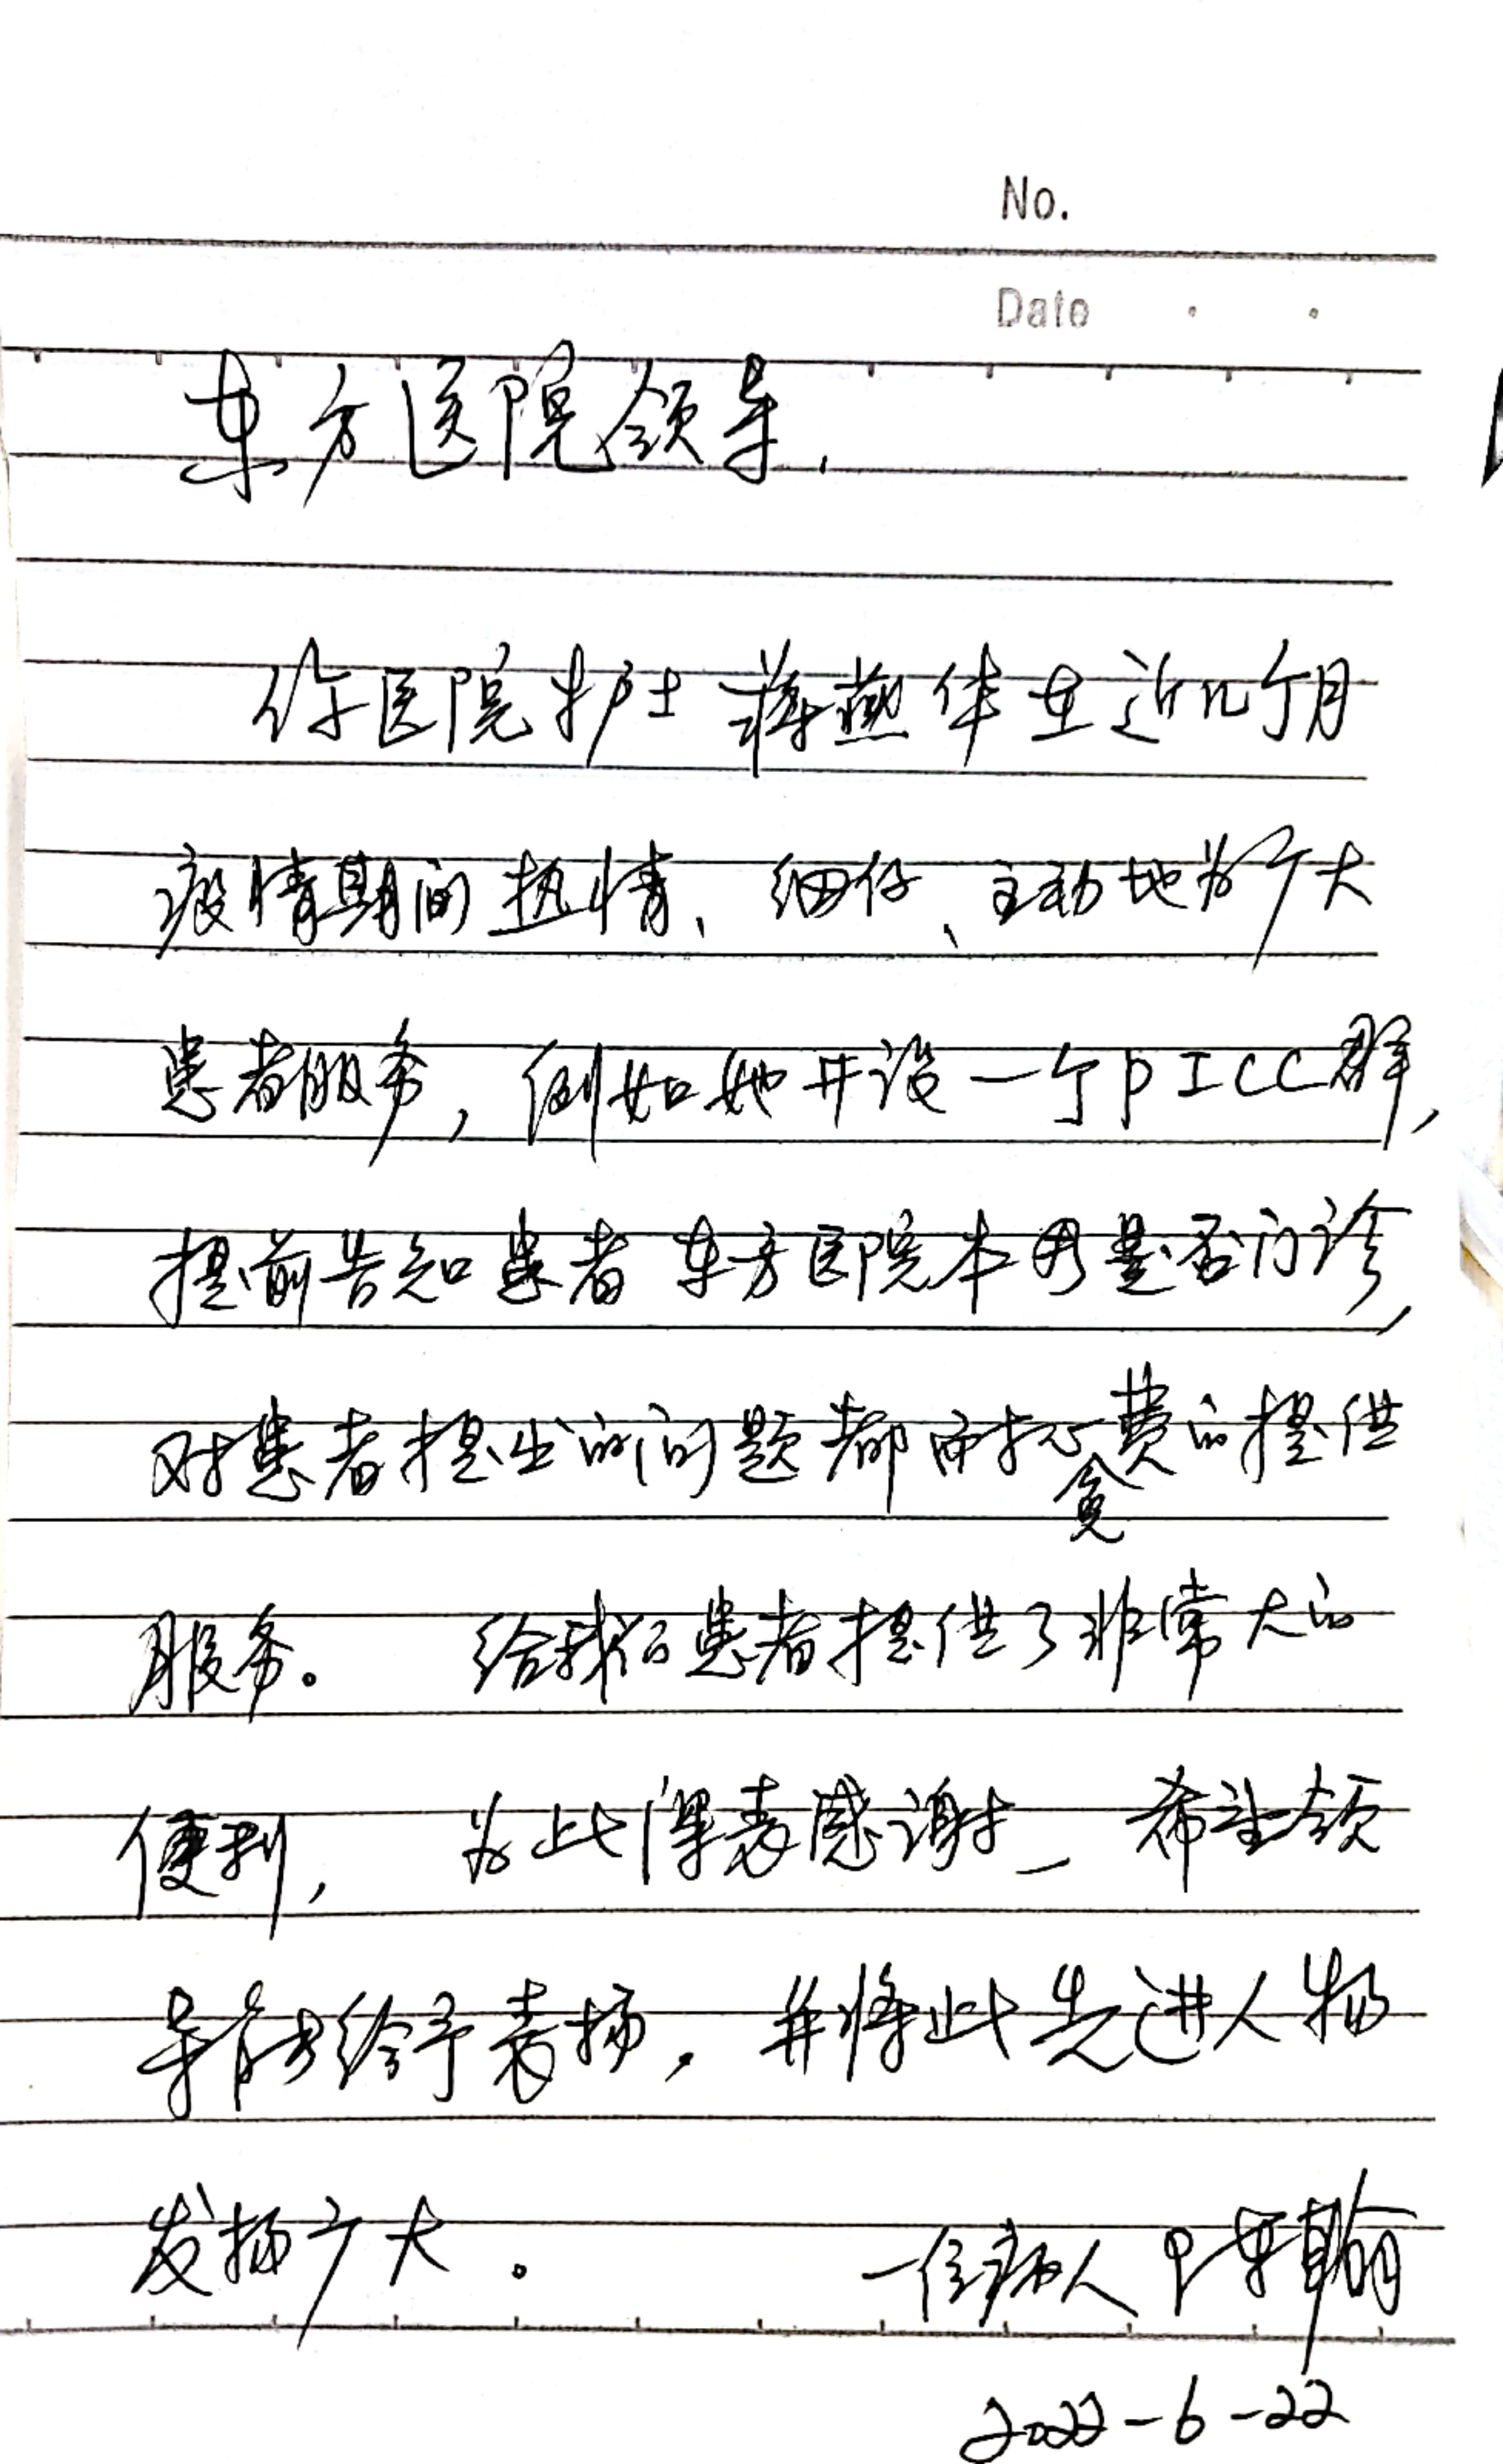 No.
Date
东方医院领导,
你医院护士蒋燕华在近几个月
疫情期间热情、细仔、主动地为广大
患者服务，例如她开设一个PICC群，
提前告知患者东方医院本周是否门诊，
对患者提出的问题都耐心免费的提供
服务。给我们患者提供了非常大的
便利，为此深表感谢，希望领
导能给予表扬，并将此先进人物
发扬广大。
一位病人
2022-6-22